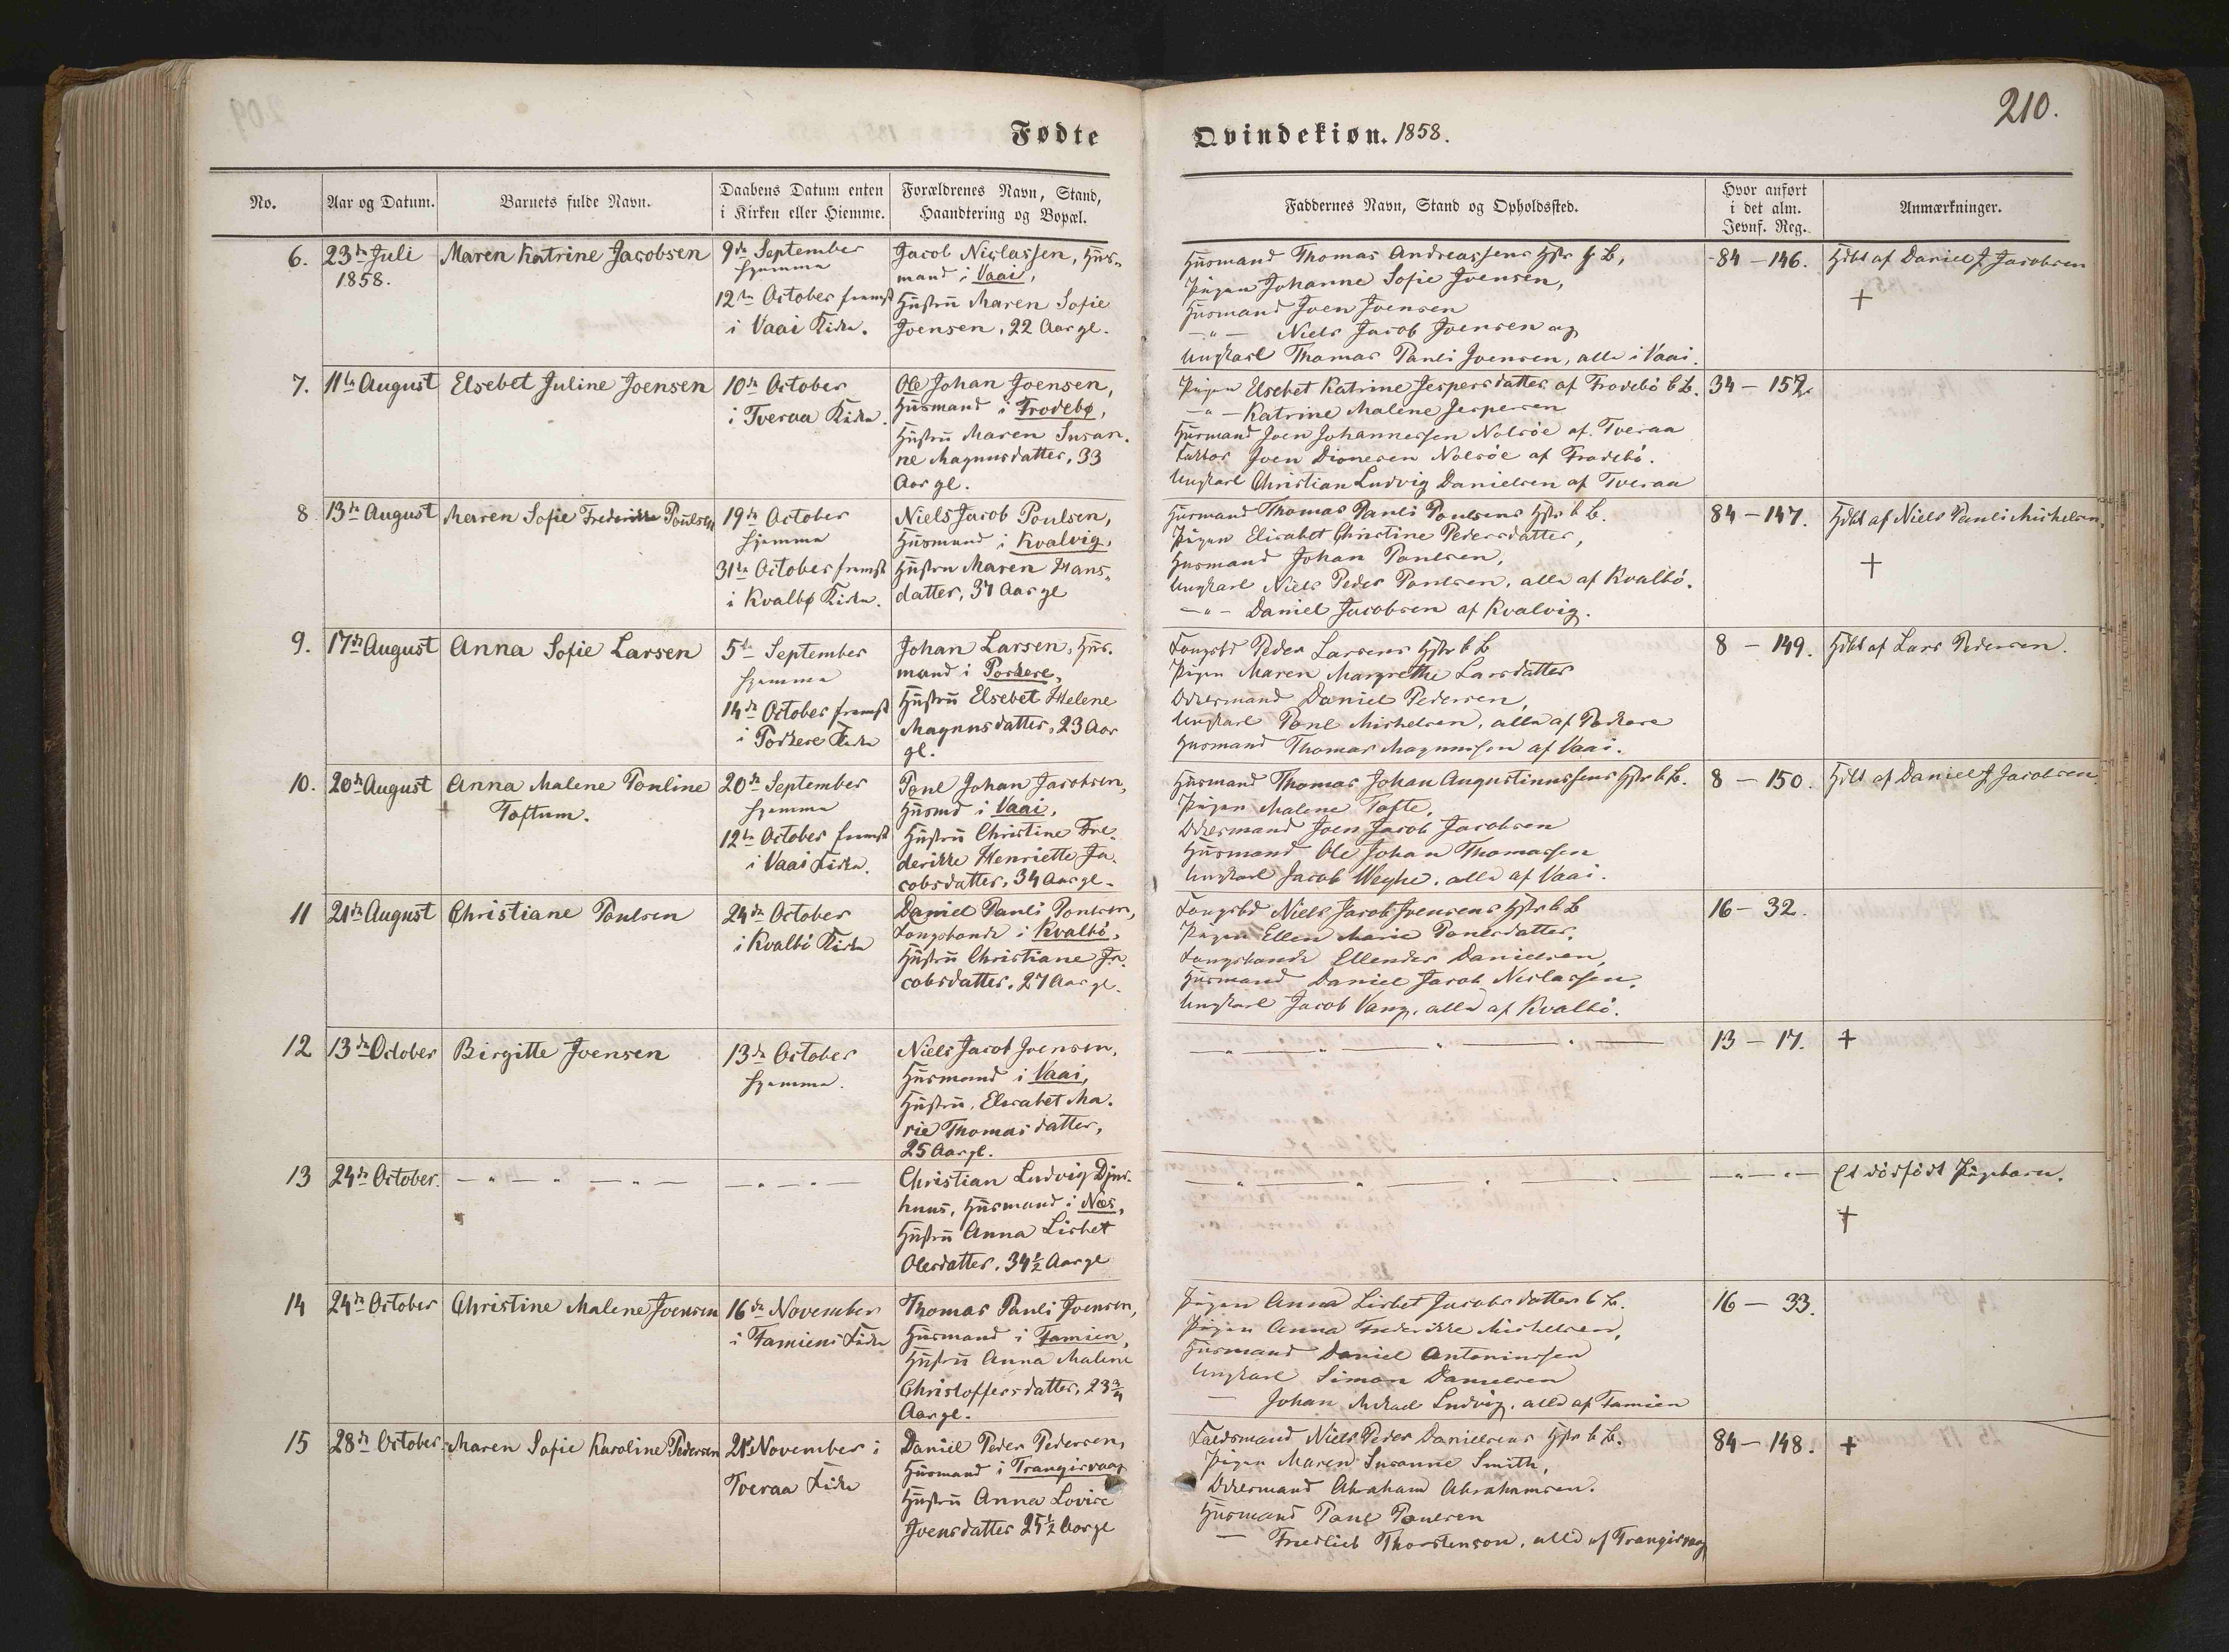 210.
Fødte Qvindekiøn. 1858.
No.
Aar og Datum.
Barnets fulde Navn.
Daabens Datum enten
i Kirken eller Hiemme.
Forældrenes Navn, Stand,
Haandtering og Bopæl.
Faddernes Navn, Stand og Opholdssted.
Hvor anført
i det alm.
Jevnf. Reg.
Anmærkninger.
6.
23de Juli
1858.
Maren Katrine Jacobsen
9de September
hjemme
12te October fremst
i Vaai Kirke.
Jacob Niclassen, Hus-
mand i Vaai,
Hustru Maren Sofie
Joensen, 22 Aar gl.
Husmand Thomas Andreassens Hstr b B,
Pigen Johanne Sofie Joensen,
Husmand Joen Joensen
—"— Niels Jacob Joensen og
Ungkarl Thomas Pauli Joensen, alle i Vaai.
84 — 146.
Hdbt af Daniel J. Jacobsen
+
7.
11te August
Elsebet Juline Joensen
10de October
i Tveraa Kirke.
Ole Johan Joensen,
Husmand i Frodebø,
Hustru Maren Susan-
ne Magnusdatter, 33
Aar gl.
Pigen Elsebet Katrine Jespersdatter af Frodebö b B.
—"— Katrine Malene Jespersen
Husmand Joen Johannessen Nolsöe af Tveraa
Joen Dionesen Nolsöe af Frodebö.
Ungkarl Christian Ludvig Danielsen af Tveraa
34 — 152.
8
13de August
Maren Sofie Frederikke Poulsen
19de October
hjemme
31te October fremst
i Kvalbø Kirke.
Niels Jacob Poulsen,
Husmand i Kvalvig,
Hustru Maren Hans-
datter, 37 Aar gl
Husmand Thomas Pauli Poulsens Hstr b B.
Pigen Elisabet Christine Pedersdatter,
Husmand Johan Poulsen,
Ungkarl Niels Peder Poulsen, alle af Kvalbö.
—"— Daniel Jacobsen af Kvalvig.
84 — 147.
Hdbt af Niels Pauli Michelsen.
+
9.
17de August
Anna Sofie Larsen
5te September
hjemme
14de October fremst
i Porkere Kirke
Johan Larsen, Hus-
mand i Porkere,
Hustru Elsebet Helene
Magnusdatter, 23 Aar
gl.
Peder Larsens Hstr b B
Pigen Maren Margrethe Larsdatter
Daniel Pedersen,
Ungkarl Poul Michelsen, alle af Porkere
Husmand Thomas Magnussen af Vaai.
8 — 149.
Hdbt af Lars Pedersen.
10.
20de August
Anna Malene Pouline
+ Toftum.
20de September
hjemme
12te October fremst
i Vaai Kirke.
Poul Johan Jacobsen,
Husmd i Vaai,
Hustru Christine Fre-
derikke Henriette Ja-
cobsdatter, 34 Aar gl.
Husmand Thomas Johan Augustinussens Hstr b B.
Pigen Malene Tofte,
Joen Jacob Jacobsen
Husmand Ole Johan Thomassen
Ungkarl Jacob Weyhe, alle af Vaai.
8 — 150.
Hdbt af Daniel J. Jacobsen.
11
21de August
Christiane Poulsen
24de October
i Kvalbö Kirke
Daniel Pauli Poulsen,
Kongsbonde i Kvalbö,
Hustru Christiane Ja-
cobsdatter, 27 Aar gl.
Kongsbd Niels Jacob Joensens Hstr b B
Pigen Ellen Marie Poulsdatter,
Kongsbonde Ellender Danielsen,
Husmand Daniel Jacob Niclassen,
Ungkarl Jacob Vang, alle af Kvalbö.
16 — 32.
12
13de October
Birgitte Joensen
13de October
hjemme.
Niels Jacob Joensen,
Husmand i Vaai,
Hustru, Elisabet Ma-
rie Thomasdatter,
25 Aar gl.
— " — " — " — " —
13 — 17.
+
13
24de October.
— " — " — " —
— " — " —
Christian Ludvig Djur-
huus, Husmand i Næs,
Hustru Anna Lisbet
Olesdatter, 34½ Aar gl
— " — " — " — " —
— " — " —
Et dödfödt Pigebarn.
+
14
24de October
Christine Malene Joensen
16de November
i Famiens Kirke
Thomas Pauli Joensen,
Husmand i Famien,
Hustru Anna Malene
Christoffersdatter, 23¾
Aar gl.
Pigen Anna Lisbet Jacobsdatter b B.
Pigen Anna Frederikke Michelsen,
Husmand Daniel Antoniussen
Ungkarl Simon Danielsen
— Johan Mikael Ludvig, alle af Famien
16 — 33.
15
28de October
Maren Sofie Karoline Pedersen
21de November i
Tveraa Kirke
Daniel Peder Pedersen,
Husmand i Trangisvaag
Hustru Anna Lovise
Joensdatter 25½ Aar gl
Niels Peder Danielsens Hstr b B.
Pigen Maren Susanne Smith,
Abraham Abrahamsen.
Husmand Poul Poulsen
— Friedlieb Thorstenson, alle af Trangisvaag
84 — 148.
+